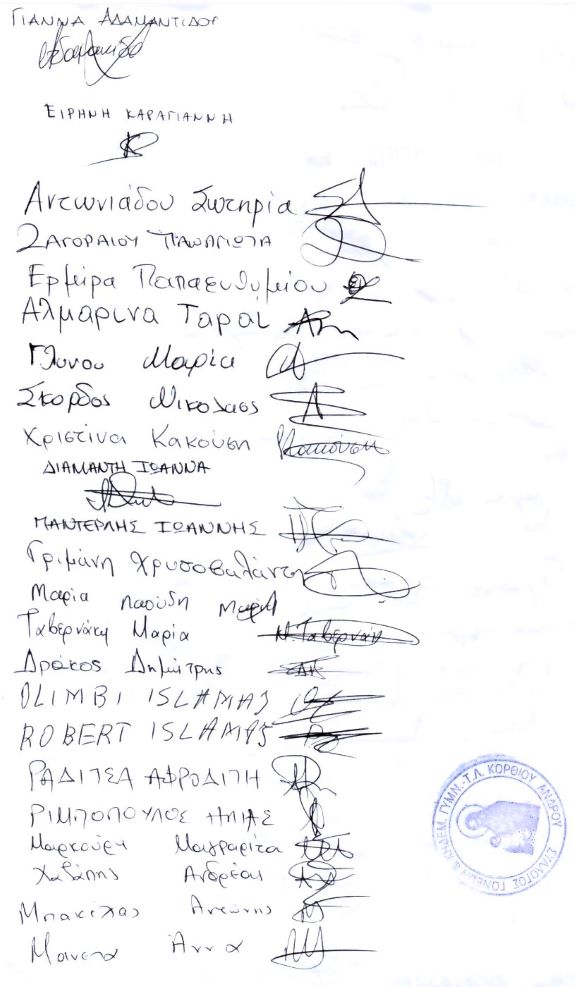 ΓΙΑΝΝΑ ΑΔΑΜΑΝΤΙΔΟΥ
ΕΙΡΗΝΗ ΚΑΡΑΓΙΑΝΝΗ
Αντωνιάδου Σωτηρία
ΖΑΓΟΡΑΙΟΥ ΠΑΝΑΓΙΩΤΑ
Ερμείρα Παπαευθυμείου
Αλμαρινα Ταραι
Γλυνού Μαρία
Σκορδος Νικολαος
Χριστίνα Κακούση Κακούση
ΔΙΑΜΑΝΤΗ ΙΩΑΝΝΑ
ΜΑΝΤΕΡΛΗΣ ΙΩΑΝΝΗΣ
Γριμάνη Χρυσοβαλάντη
Μαρία Λαούδη
Ταβερνάκη Μαρία Μ. Ταβερνάκη
Δράκος Δημήτρης
OLIMBI ISLAMAJ
ROBERT ISLAMAJ
ΡΑΔΙΤΣΑ ΑΦΡΟΔΙΤΗ
ΡΙΜΠΟΠΟΥΛΟΣ ΗΛΙΑΣ
Μαργαρίτα
Χαζάπης Ανδρέας
Μπακέλας Αντώνης
Μανέτα Άννα
ΣΥΛΛΟΓΟΣ ΓΟΝΕΩΝ & ΚΗΔΕΜ. ΓΥΜΝ.-Τ.Λ. ΚΟΡΘΙΟΥ ΑΝΔΡΟΥ